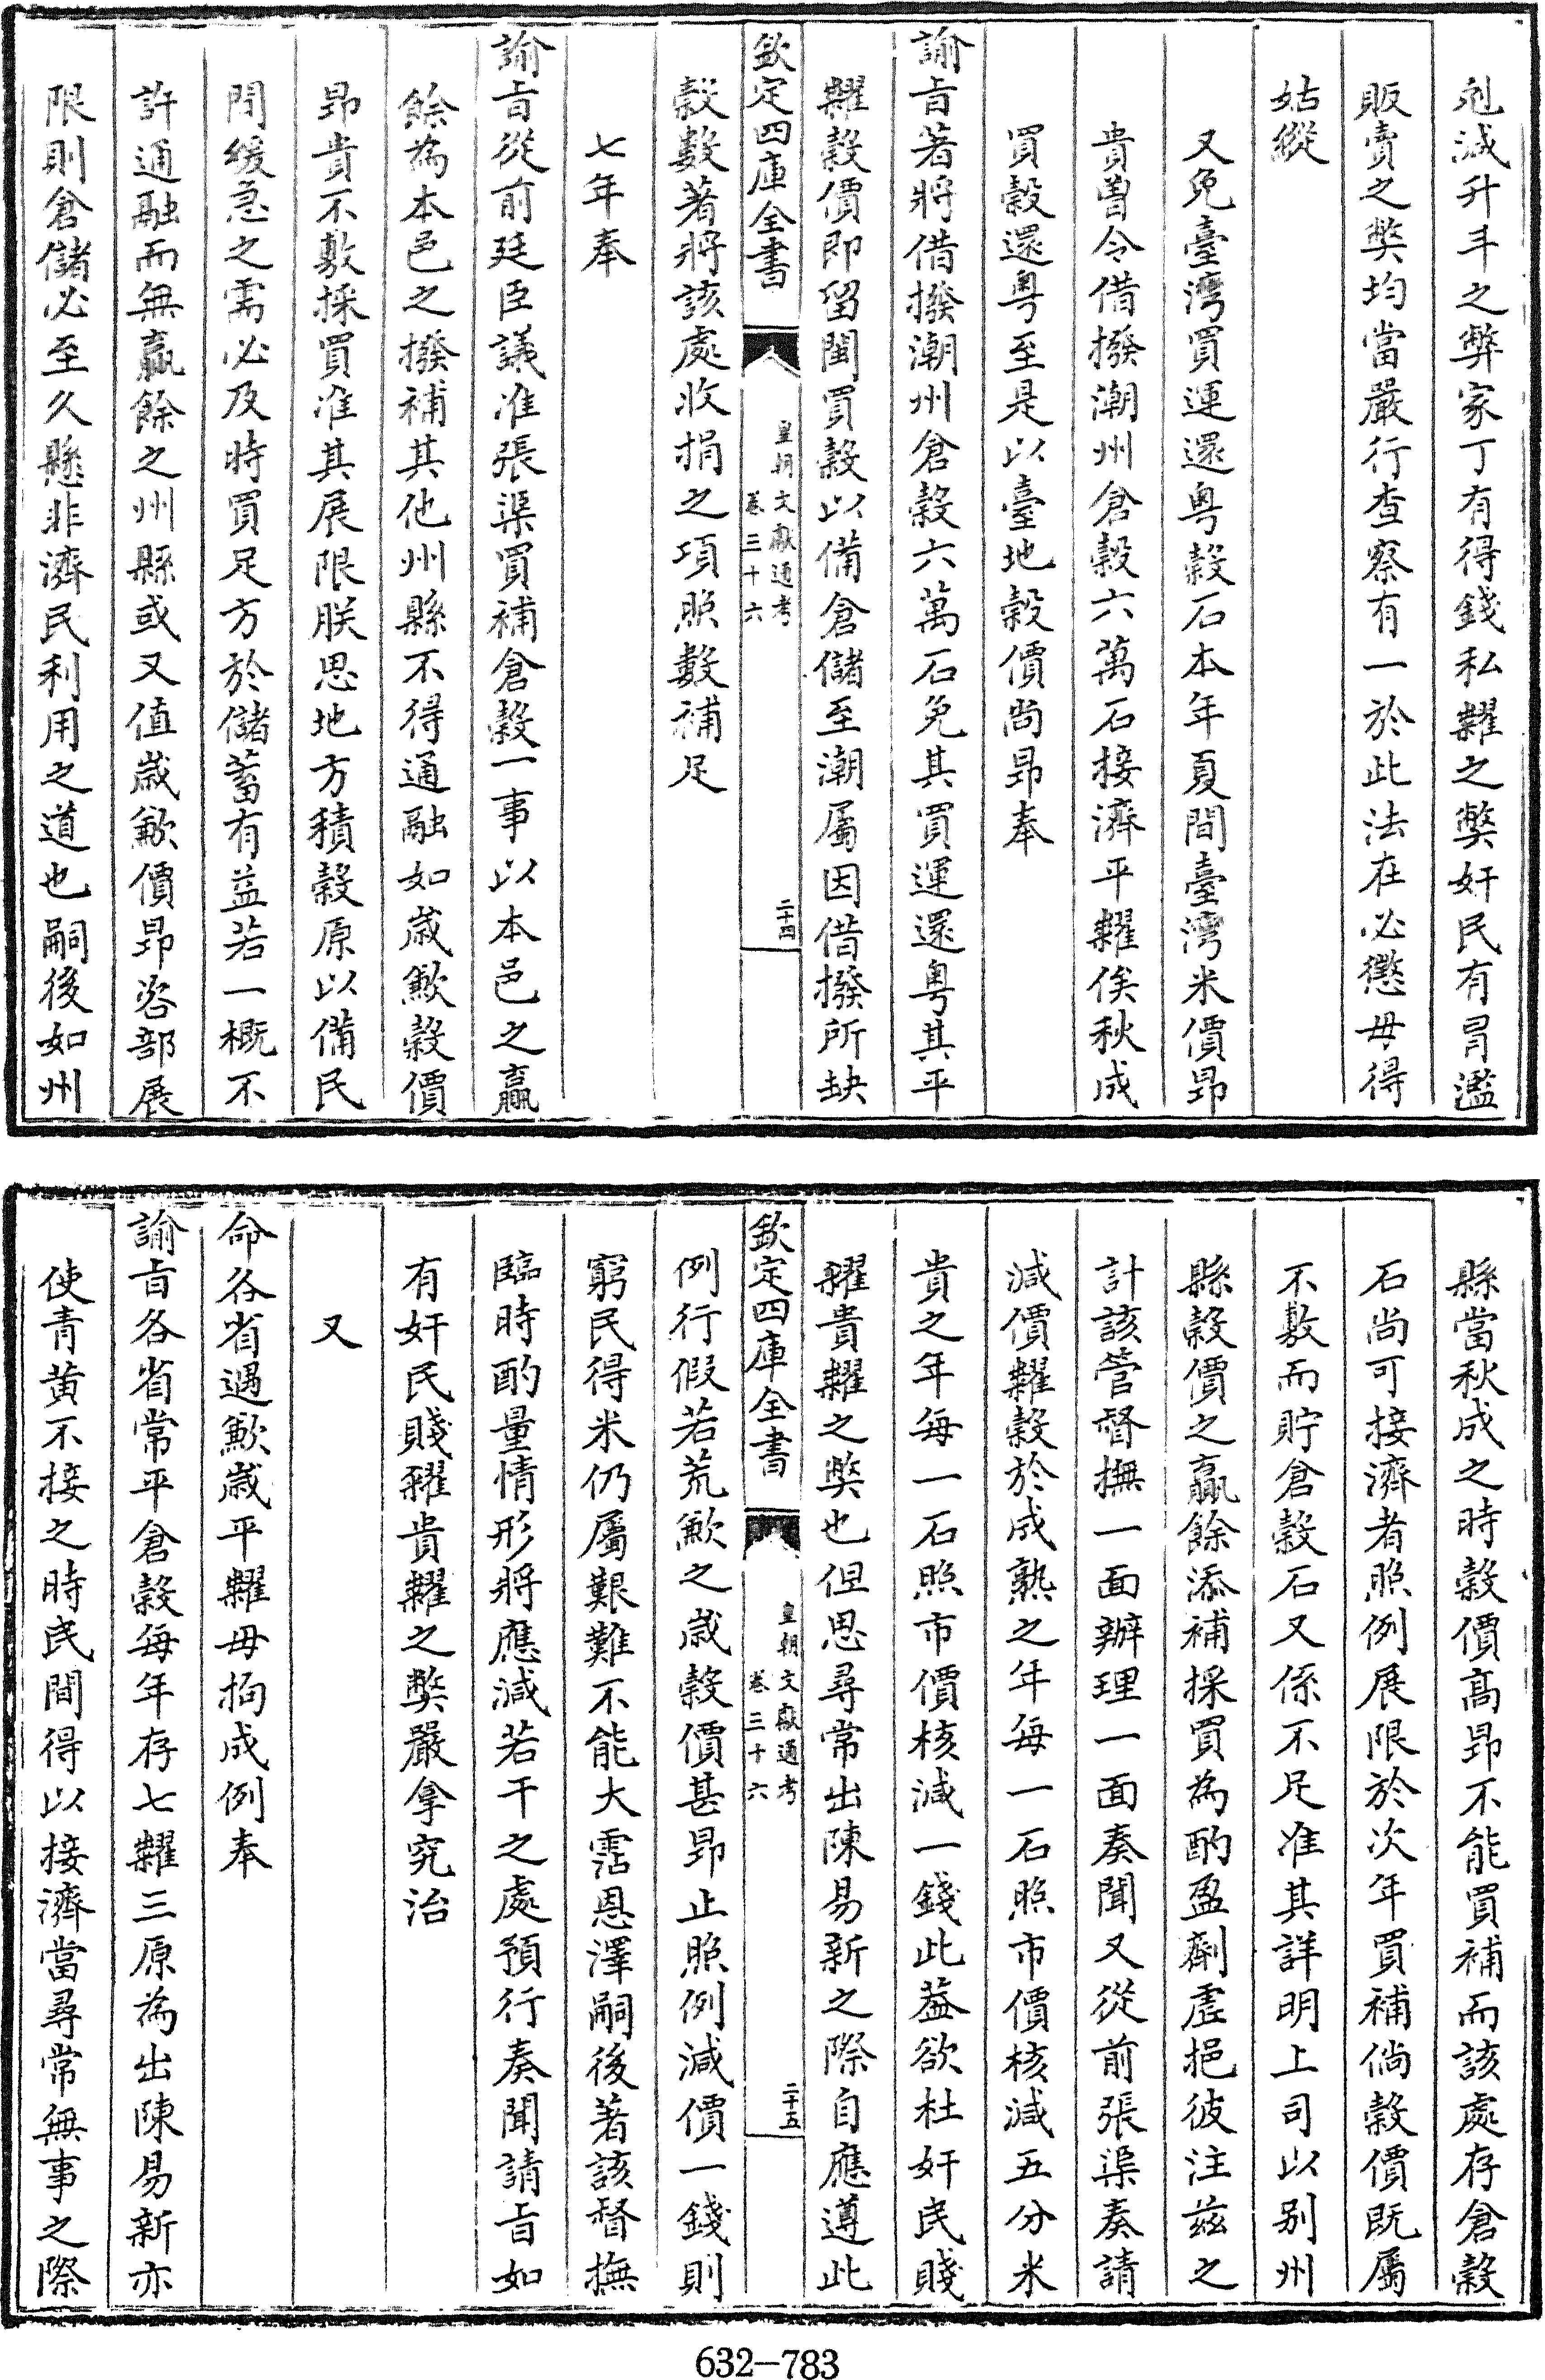 剋減升斗之弊家丁有得錢私糶之獘奸民有冐濫
販賣之獘均當嚴行查察有一於此法在必懲毋得
姑縱
又免臺灣買運還粤榖石本年夏間臺灣米價昻
貴曽令借撥潮州倉榖六萬石接濟平糶俟秋成
買榖還粤至是以臺地榖價尚昻奉
諭㫖著將借撥潮州倉榖六萬石免其買運還粤其平
糶榖價即留閩買榖以備倉儲至潮屬因借撥所缺
欽定四庫全書
皇朝文獻通考
卷三十六
二十四
榖數著將該處收捐之項照數補足
七年奉
諭㫖從前廷臣議准張渠買補倉榖一事以本邑之贏
餘為本邑之撥補其他州縣不得通融如歳歉榖價
昻貴不敷採買准其展限朕思地方積榖原以備民
間緩急之需必及時買足方於儲蓄有益若一概不
許通融而無贏餘之州縣或又值歳歉價昻咨部展
限則倉儲必至久懸非濟民利用之道也嗣後如州
縣當秋成之時榖價髙昻不能買補而該處存倉榖
石尚可接濟者照例展限於次年買補倘榖價既屬
不敷而貯倉榖石又係不足准其詳明上司以别州
縣榖價之贏餘添補採買為酌盈劑虚挹彼注兹之
計該管督撫一面辦理一面奏聞又從前張渠奏請
減價糶榖於成熟之年每一石照市價核減五分米
貴之年每一石照市價核減一錢此葢欲杜奸民賤
糴貴糶之獘也但思尋常出陳易新之際自應遵此
欽定四庫全書
皇朝文獻通考
卷三十六
二十五
例行假若荒歉之歳榖價甚昻止照例減價一錢則
窮民得米仍屬艱難不能大霑恩澤嗣後著該督撫
臨時酌量情形將應減若干之處預行奏聞請㫖如
有奸民賤糴貴糶之獘嚴拿究治
又
命各省遇歉歳平糶毋拘成例奉
諭㫖各省常平倉榖每年存七糶三原為出陳易新亦
使青黄不接之時民間得以接濟當尋常無事之際
632-783